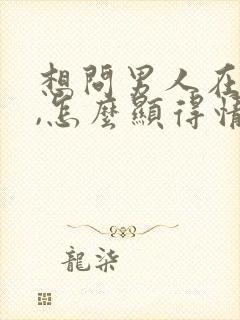 想問男人在
,怎麼顯得情
龍柒